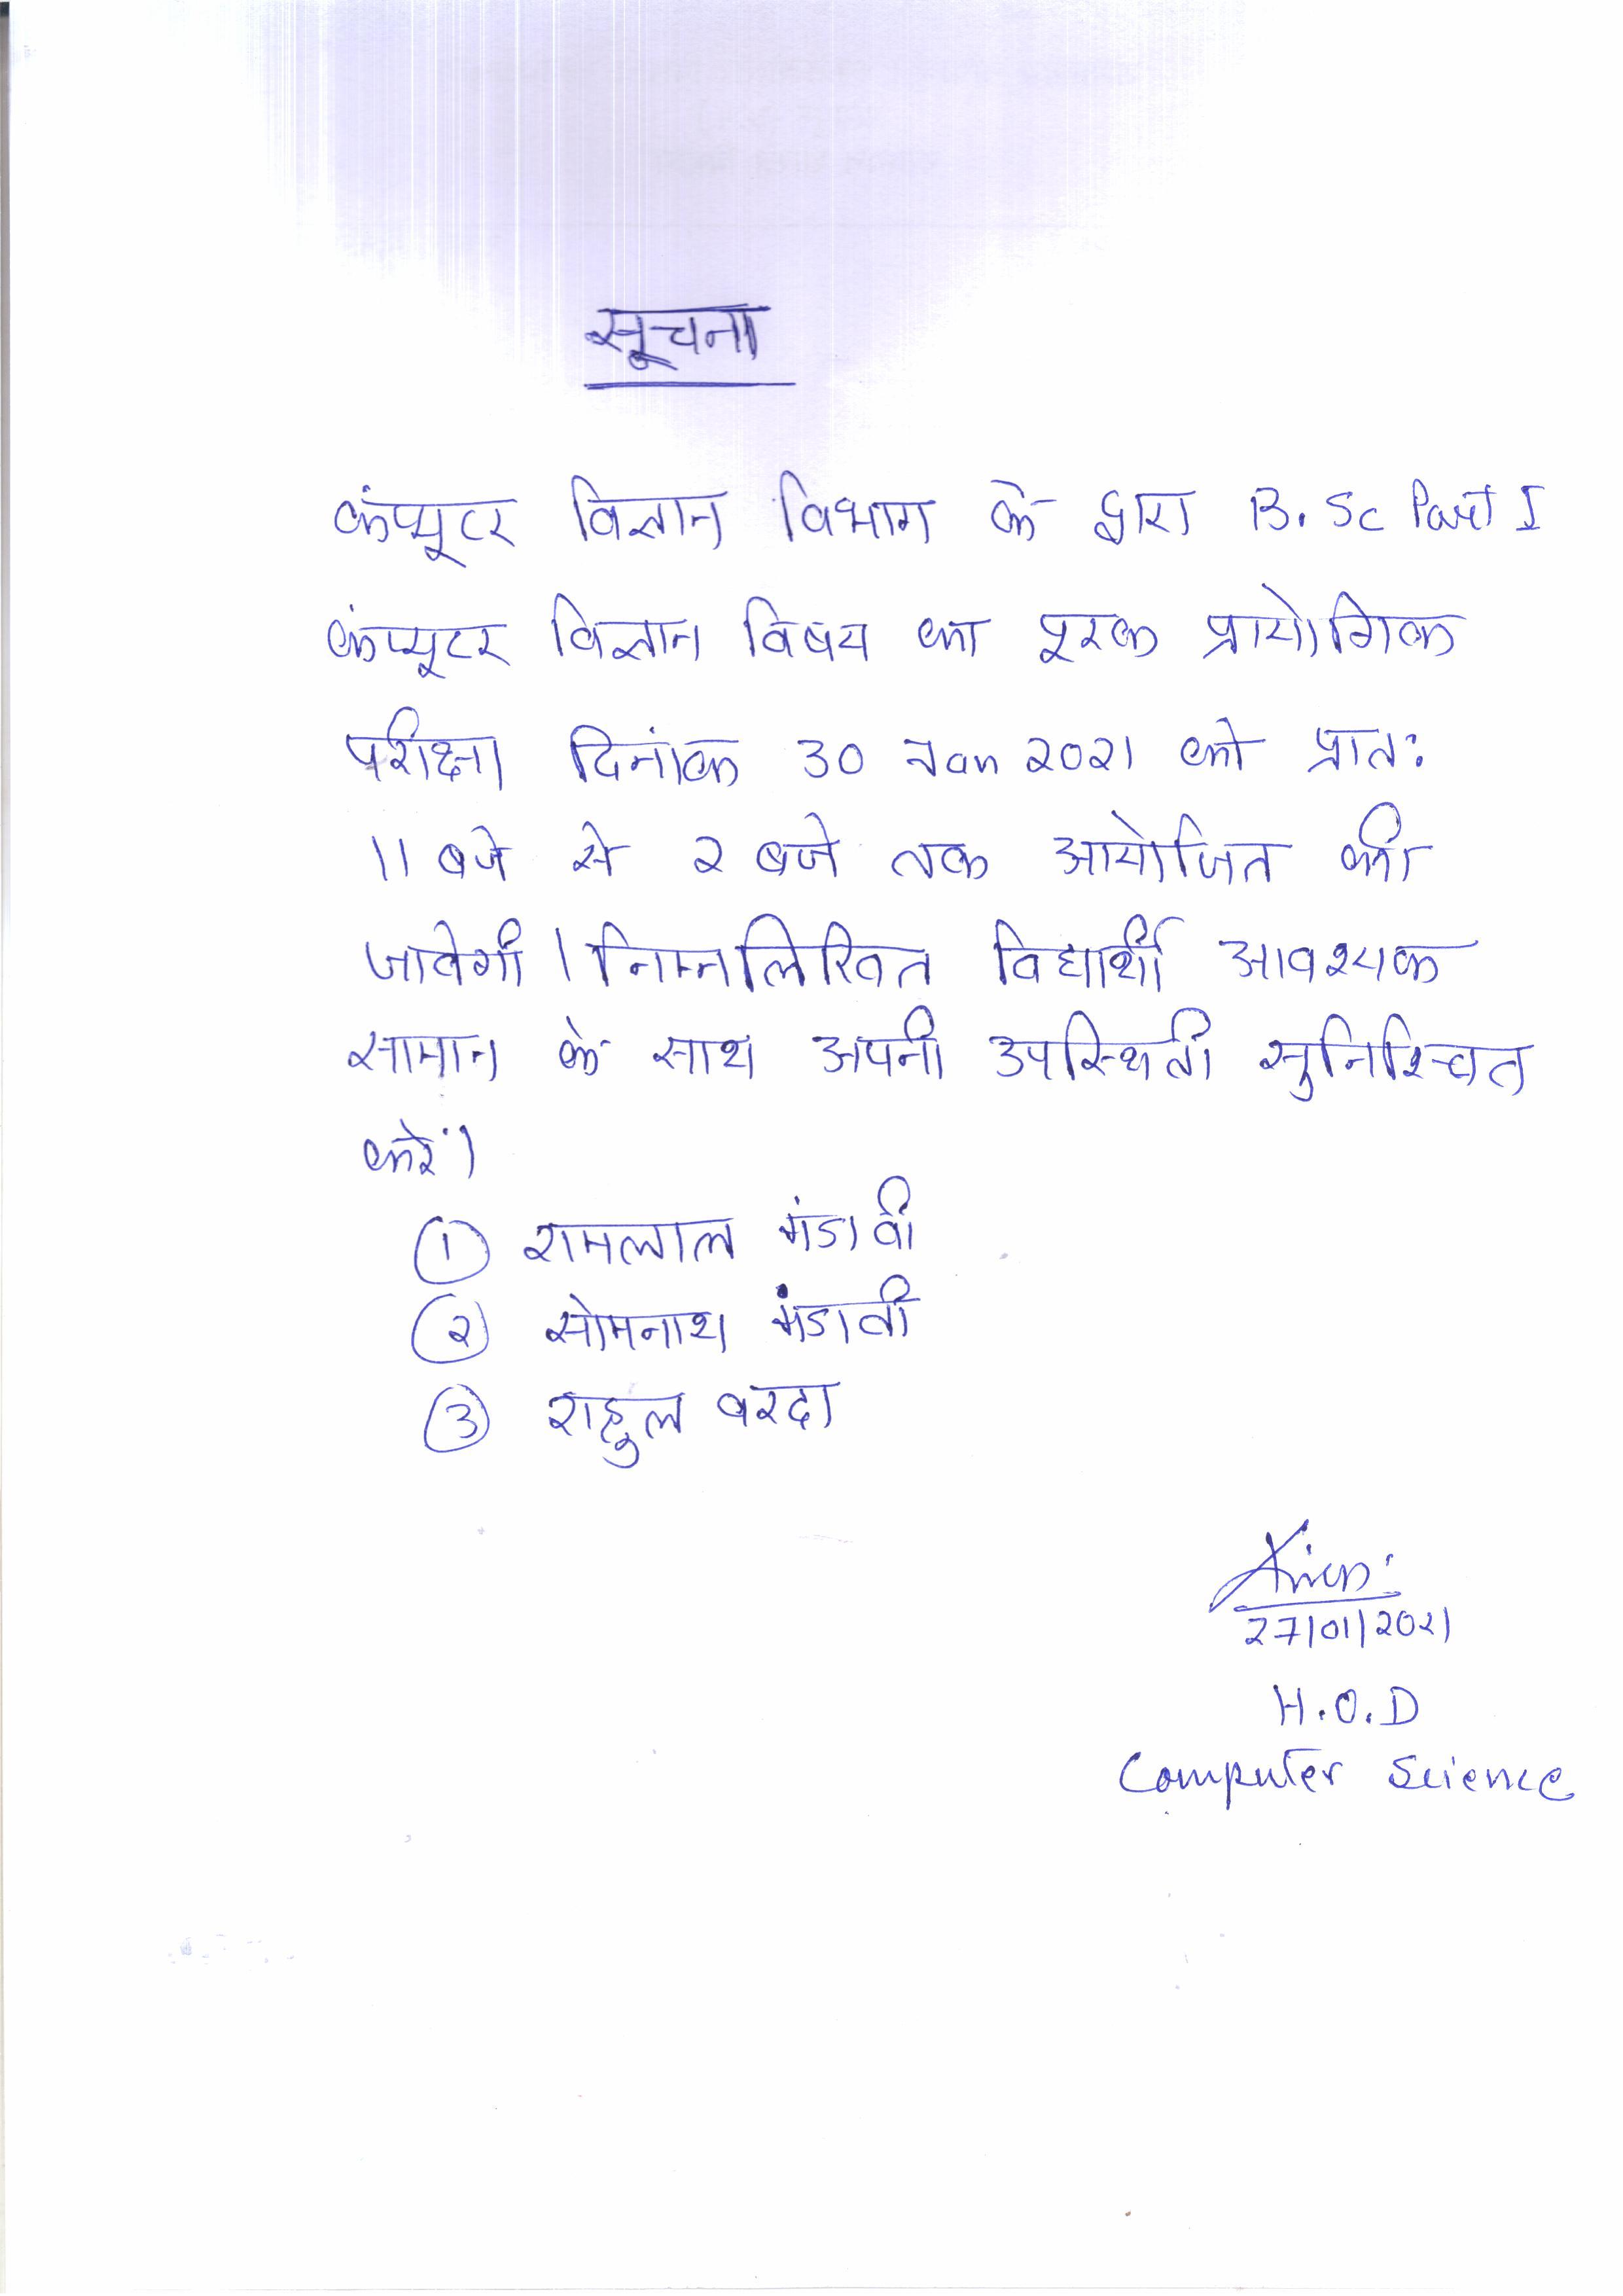 सूचना
कंप्यूटर विज्ञान विभाग के द्वारा B.Sc Part I
कंप्यूटर विज्ञान विषय का पूरक प्रायोगिक
परीक्षा दिनांक 30 Jan 2021 को प्रातः
11 बजे से 2 बजे तक आयोजित की
जावेगी। निम्नलिखित विद्यार्थी आवश्यक
सामान के साथ अपनी उपस्थिती सुनिश्चित
करें।
① रामलाल मंडावी
② सोमनाथ मंडावी
③ राहुल वरदा
27/01/2021
H.O.D
Computer Science